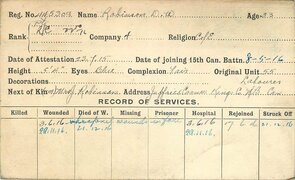 Reg. No. 445308 Name Robinson, D. A. Age 23
Rank Company A Religion C/E
Date of Attestation 23.7.15 Date of joining 15th Can. Battn. 8-5-16
Height Eyes Blue Complexion Fair Original Unit 55
Decorations Laborer
Next of Kin Robinson Address Kings C. N.B. Can
RECORD OF SERVICES.
Killed Wounded Died of W. Missing Prisoner Hospital Rejoined Struck Off
3.6.16 wounds 3.6.16 21.12.16
28.11.16. 21.12.16 28.11.16.